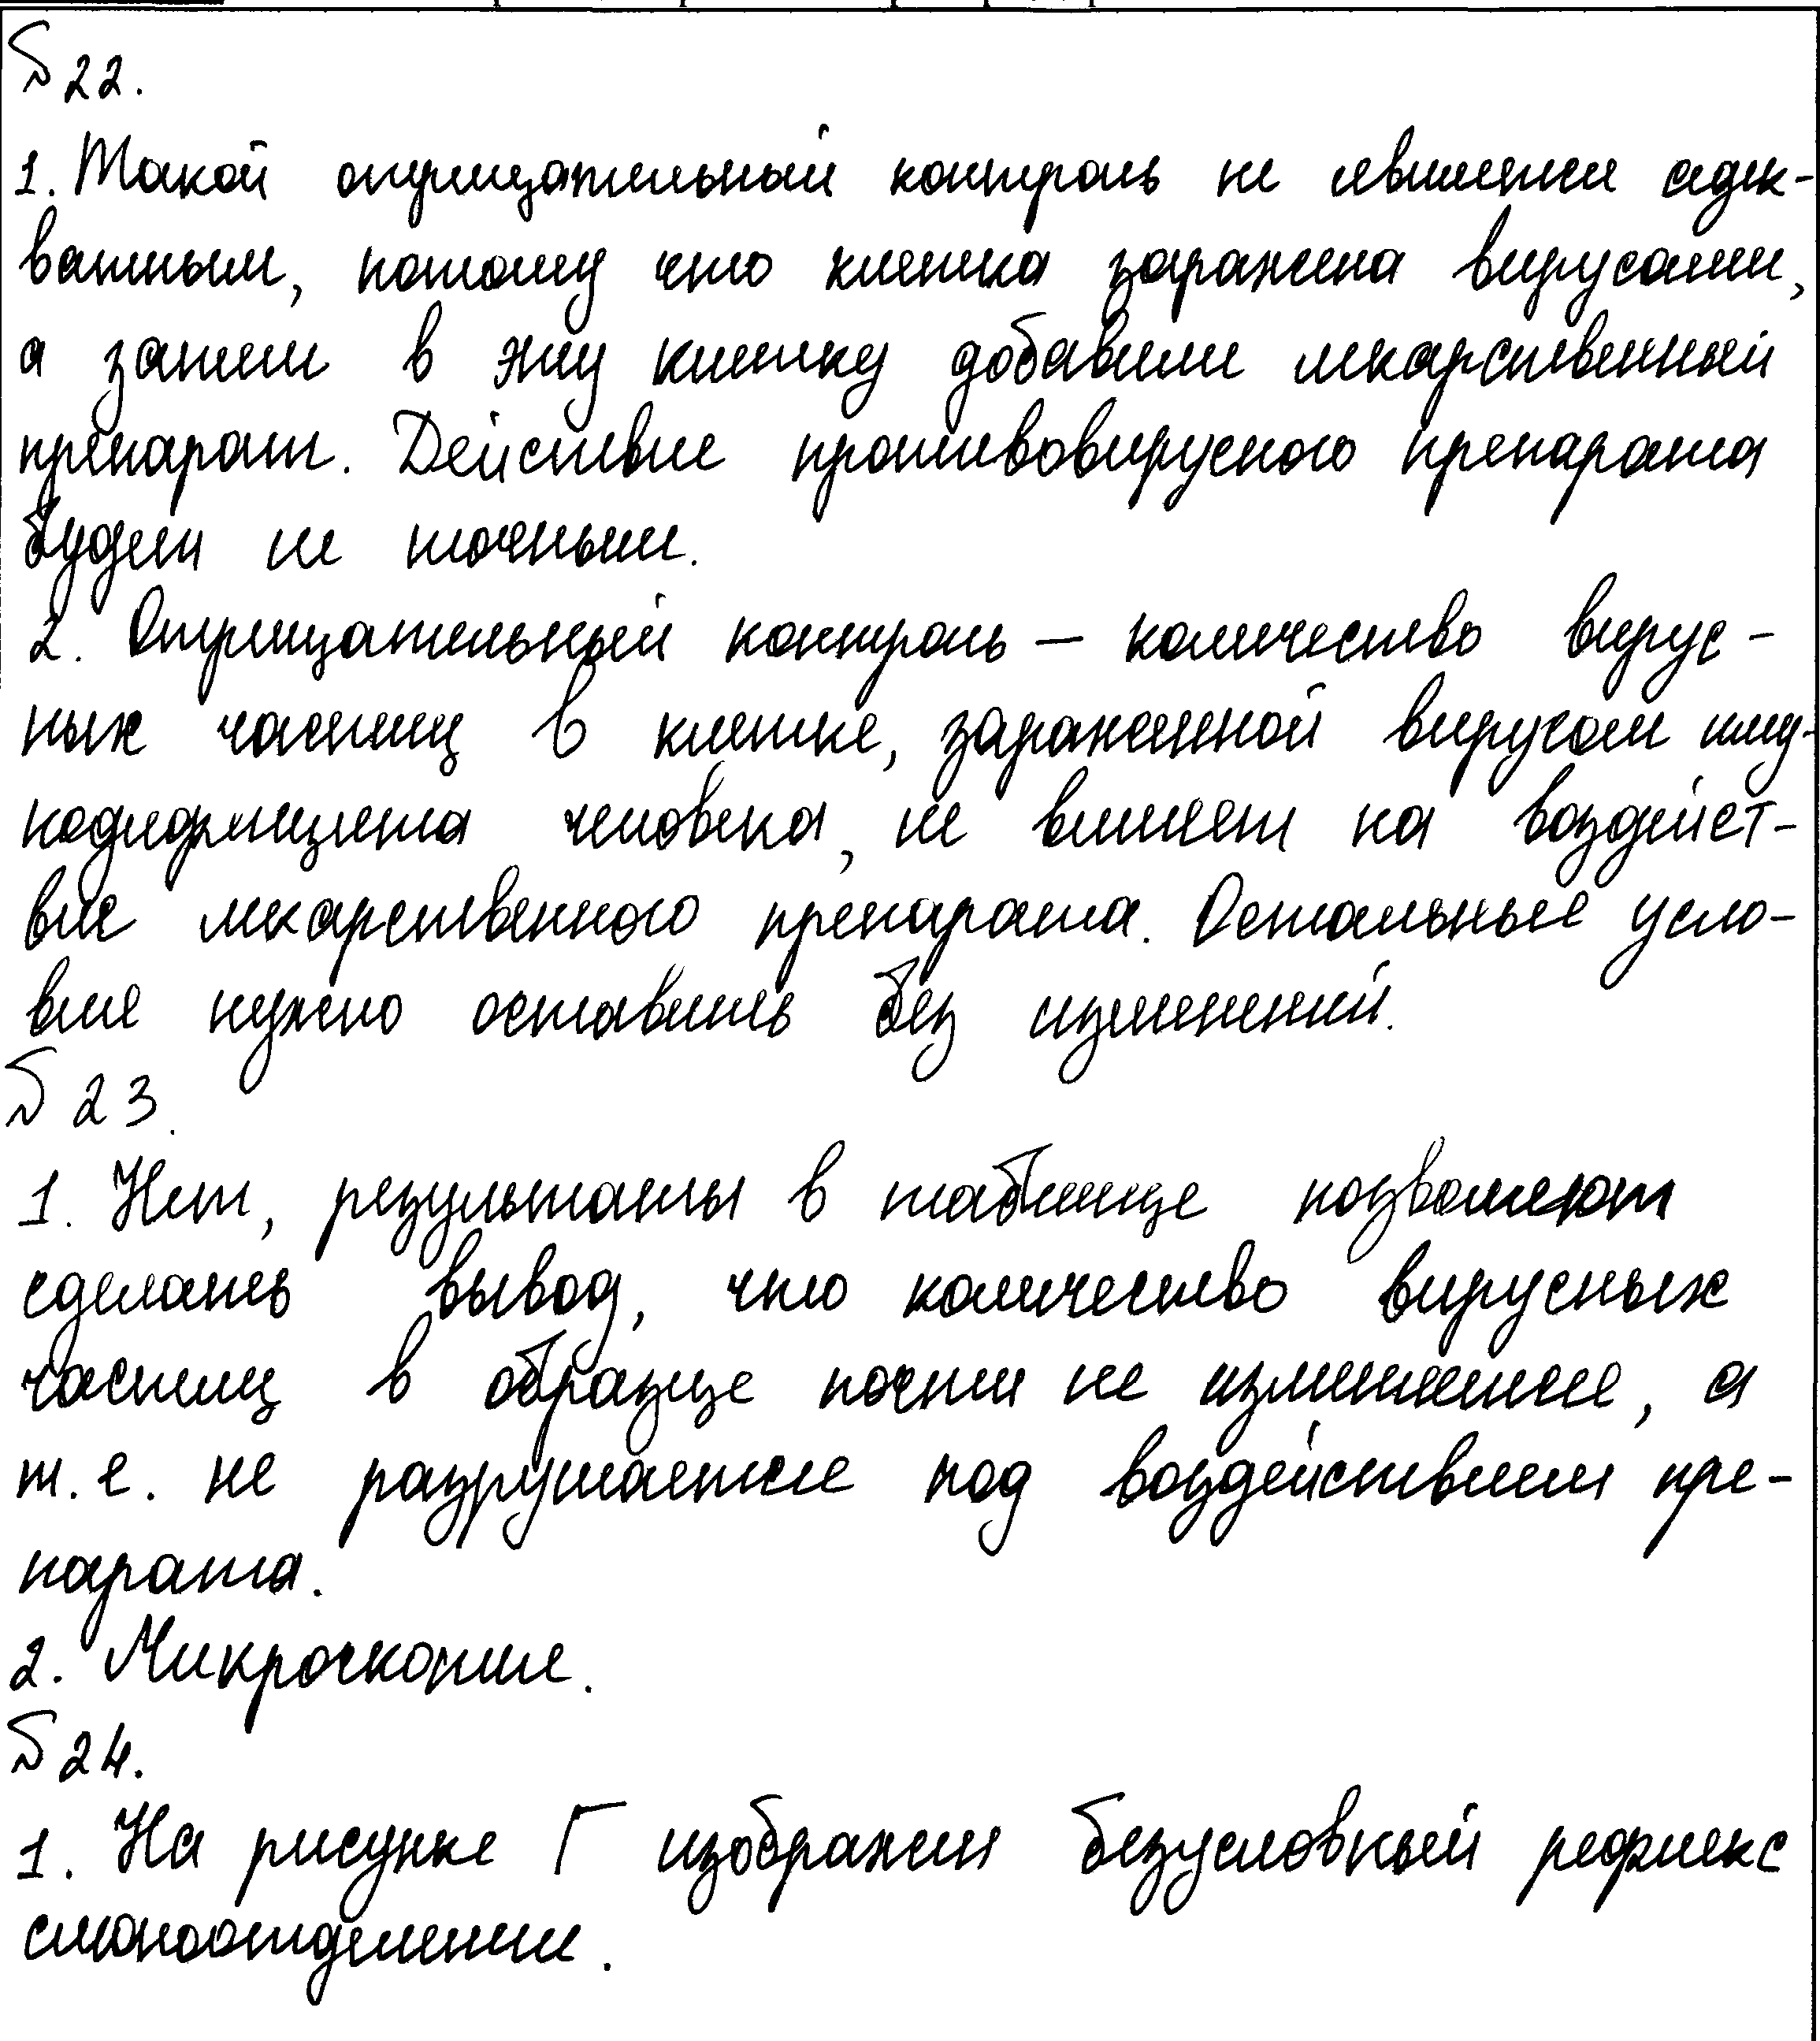 № 22.
1. Такой отрицательный контроль не является адек-
ватным, потому что клетка заражена вирусами,
а затем в эту клетку добавили лекарственный
препарат. Действие противовирусного препарата
будет не точным.
2. Отрицательный контроль — количество вирус-
ных частиц в клетке, зараженной вирусом имму-
нодефицита человека, не влияет на воздейст-
вие лекарственного препарата. Остальные усло-
вия нужно оставить без изменений.
№ 23.
1. Нет, результаты в таблице позволяют
сделать вывод, что количество вирусных
частиц в образце почти не изменяется, а
т.е. не разрушается под воздействием пре-
парата.
2. Микроскопия.
№ 24.
1. На рисунке Г изображен безусловный рефлекс
слюноотделения.